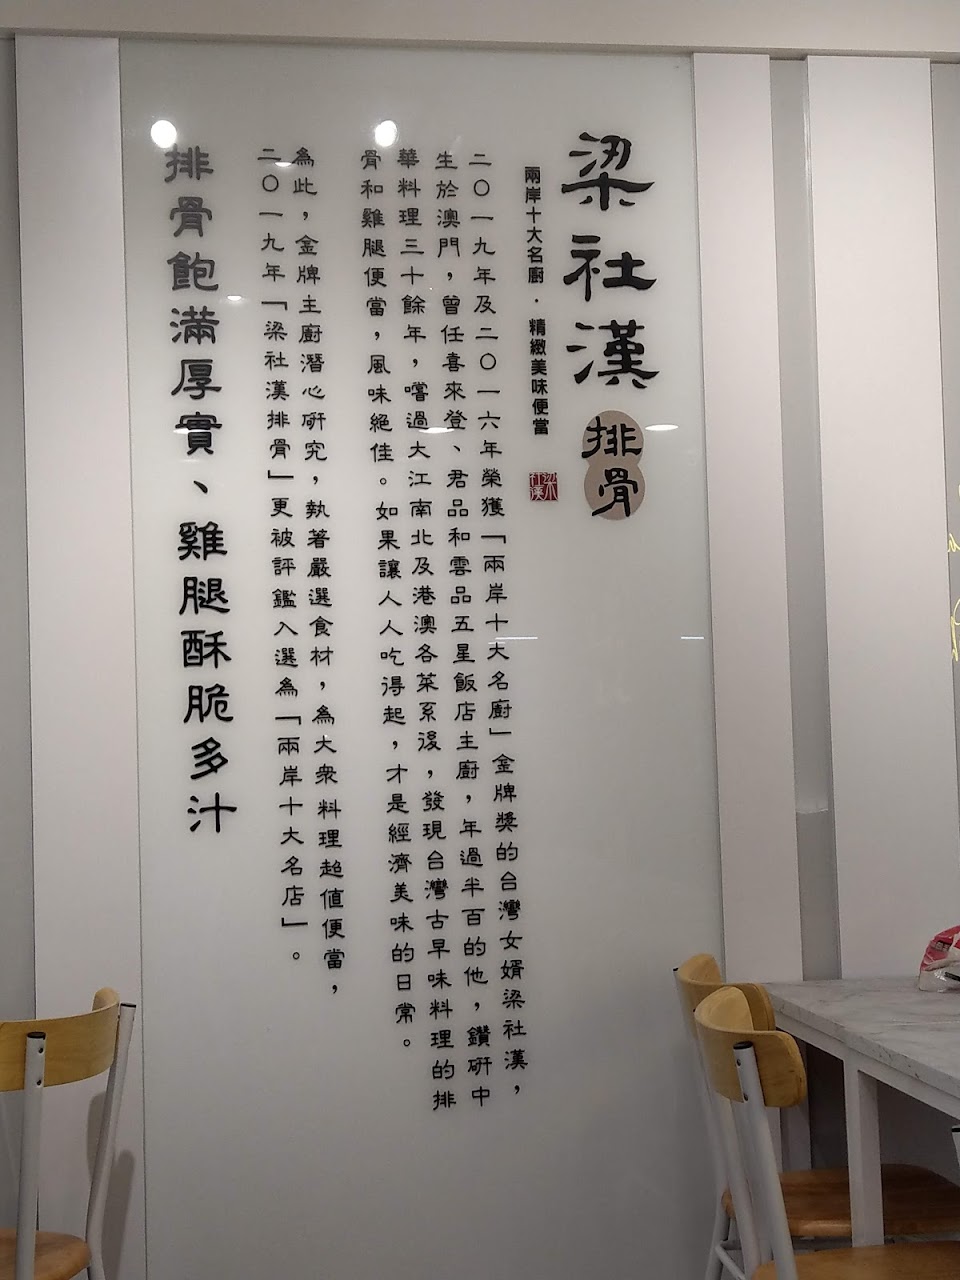 梁社漢
排骨
兩岸十大名廚．精緻美味便當
二〇一九年及二〇一六年榮獲「兩岸十大名廚」金牌獎的台灣女婿梁社漢，
生於澳門，曾任喜來登、君品和雲品五星飯店主廚，年過半百的他，鑽研中
華料理三十餘年，嚐過大江南北及港澳各菜系後，發現台灣古早味料理的排
骨和雞腿便當，風味絕佳。如果讓人人吃得起，才是經濟美味的日常。
為此，金牌主廚潛心研究，執著嚴選食材，為大眾料理超值便當，
二〇一九年「梁社漢排骨」更被評鑑入選為「兩岸十大名店」。
排骨飽滿厚實、雞腿酥脆多汁